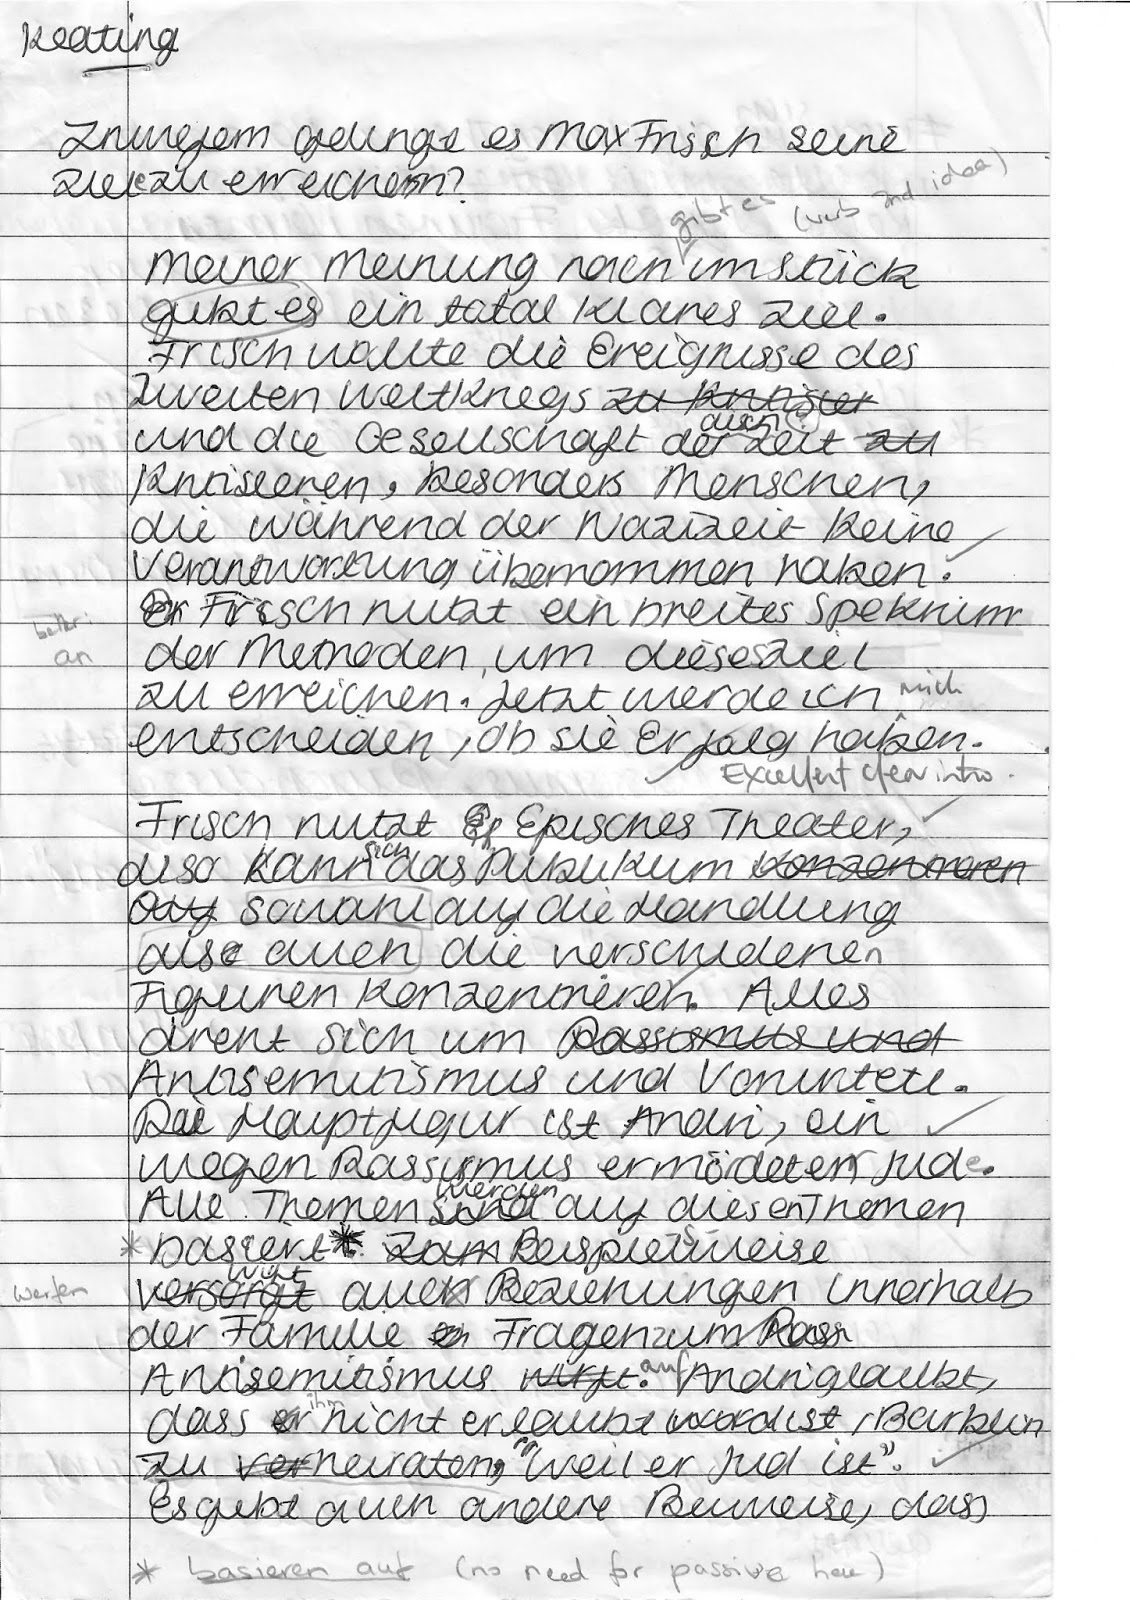 Keating
Inwiefern gelingt es Max Frisch seine
Ziele zu erreichen?
gibt es (verb 2nd idea)
Meiner Meinung nach im Stück
gibt es ein total klares Ziel.
Frisch wollte die Ereignisse des
Zweiten Weltkriegs zu kritisier
auch ?
und die Gesellschaft der Zeit zu
kritisieren, besonders Menschen,
die während der Nazizeit keine
Verantwortung übernommen haben.
Er Frisch nutzt ein breites Spektrum
better
an
der Methoden, um dieses Ziel
zu erreichen. Jetzt werde ich mich
entscheiden, ob sie Erfolg haben.
Excellent clear intro.
Frisch nutzt Episches Theater,
also kann sich das Publikum konzentrieren
auf sowohl auf die Handlung
als auch die verschiedenen
Figuren konzentrieren. Alles
dreht sich um Rassismus und
Antisemitismus und Vorurteil.
Die Hauptfigur ist Andri, ein
wegen Rassismus ermördeter Jude.
werden
Alle Themen sind auf diesen Themen
* basiert * Zum Beispielsweise
wirft
werfen versorgt auch Beziehungen innerhalb
der Familie Fragen zum Rass
Antisemitismus wirft. auf Andri glaubt,
dass er ihm nicht erlaubt ist, Barblin
zu verheiraten, "weil er Jud ist".
Es gibt auch andere Beweise, dass
* basieren auf (no need for passive here)